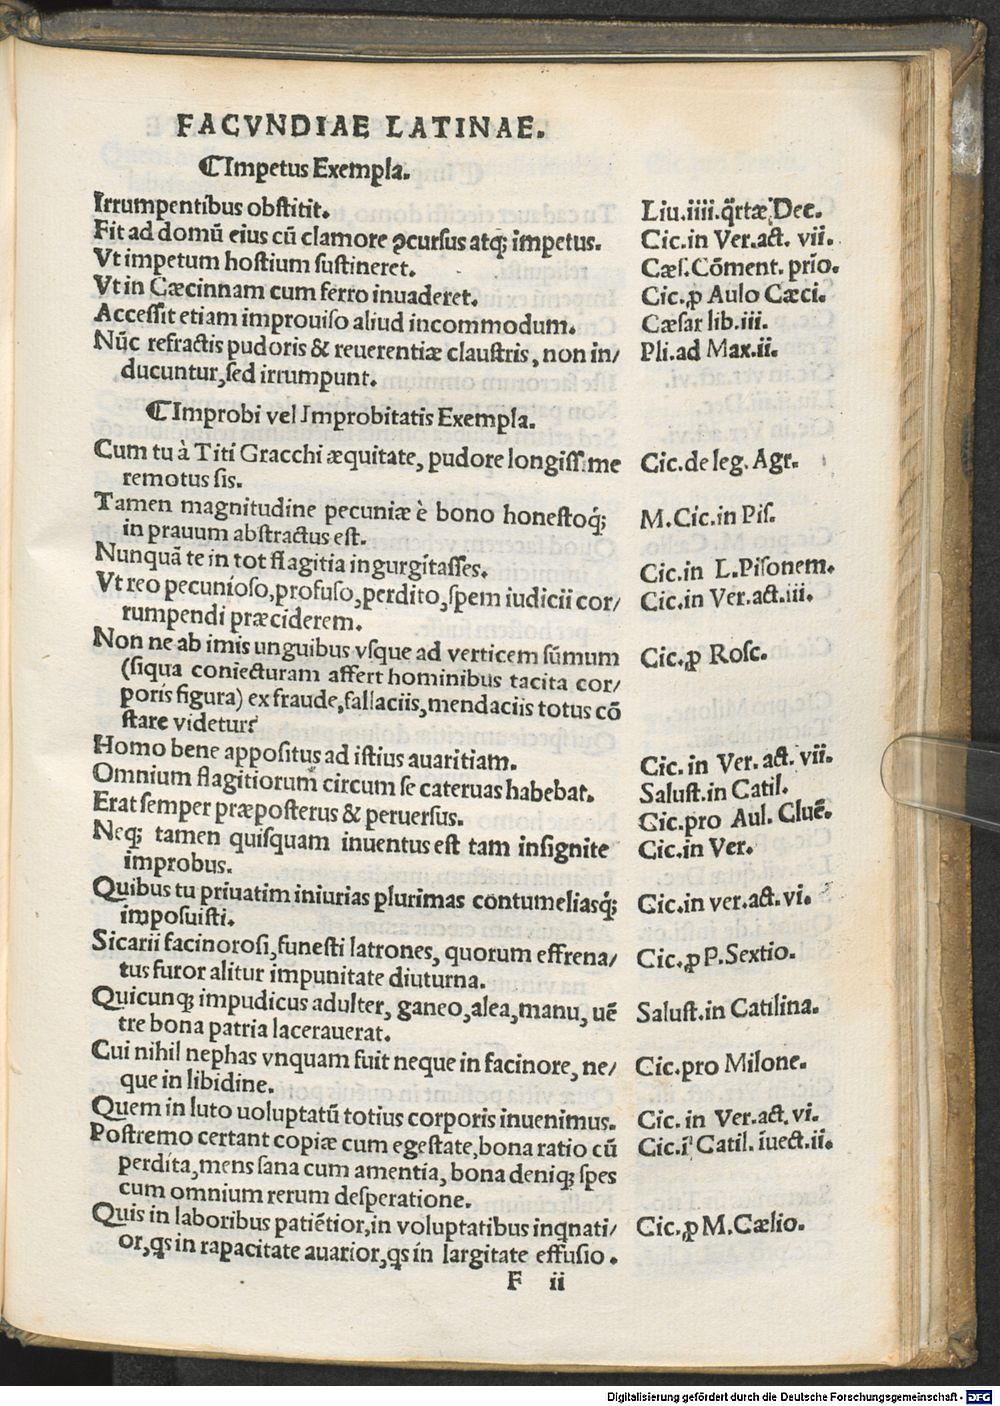 FACVNDIAE LATINAE.
⸿Impetus Exempla.
Irrumpentibus obstitit. Liu.iiii.q̃rtæ Dec.
Fit ad domū eius cū clamore ꝯcursus atq; impetus. Cic.in Ver.act. vii.
Vt impetum hostium sustineret. Cæs. Cōment. prīo.
Vt in Cæcinnam cum ferro inuaderet. Cic.ꝑ Aulo Cæci.
Accessit etiam improuiso aliud incommodum. Cæsar lib.iii.
Nūc refractis pudoris & reuerentiæ claustris, non in/ Pli.ad Max.ii.
ducuntur, sed irrumpunt.
⸿Improbi vel Improbitatis Exempla.
Cum tu à Titi Gracchi æquitate, pudore longissime Cic.de leg. Agr.
remotus sis.
Tamen magnitudine pecuniæ è bono honestoq́; M.Cic.in Pis.
in prauum abstractus est.
Nunquā te in tot flagitia ingurgitasses. Cic.in L.Pisonem.
Vt reo pecunioso, profuso, perdito, spem iudicii cor/ Cic.in Ver.act.iii.
rumpendi præciderem.
Non ne ab imis unguibus vsque ad verticem sūmum Cic.ꝑ Rosc.
(siqua coniecturam affert hominibus tacita cor/
poris figura) ex fraude, fallaciis, mendaciis totus cō
stare videtur?
Homo bene appositus ad istius auaritiam. Cic. in Ver. act. vii.
Omnium flagitiorum circum se cateruas habebat. Salust.in Catil.
Erat semper præposterus & peruersus. Cic.pro Aul. Cluē.
Neq; tamen quisquam inuentus est tam insignite Cic.in Ver.
improbus.
Quibus tu priuatim iniurias plurimas contumeliasq́; Cic.in ver.act.vi.
imposuisti.
Sicarii facinorosi, funesti latrones, quorum effrena/ Cic.ꝑ P.Sextio.
tus furor alitur impunitate diuturna.
Quicunq; impudicus adulter, ganeo, alea, manu, uē Salust.in Catilina.
tre bona patria lacerauerat.
Cui nihil nephas vnquam fuit neque in facinore, ne/ Cic.pro Milone.
que in libidine.
Quem in luto uoluptatū totius corporis inuenimus. Cic. in Ver.act.vi.
Postremo certant copiæ cum egestate, bona ratio cū Cic.ī Catil. īuect.ii.
perdita, mens sana cum amentia, bona deniq; spes
cum omnium rerum desperatione.
Quis in laboribus patiētior, in voluptatibus inqnati/ Cic.ꝑ M.Cælio.
or, qs in rapacitate auarior, qs in largitate effusio.
F ii
Digitalisierung gefördert durch die Deutsche Forschungsgemeinschaft - DFG